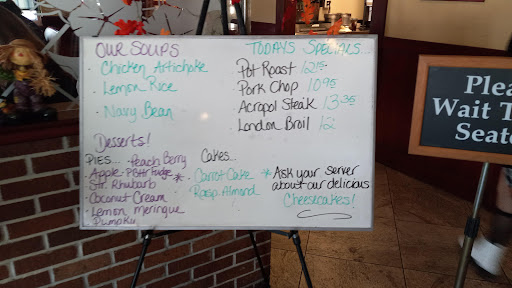 OUR SOUPS
• Chicken Artichoke
• Lemon Rice
• Navy Bean
TODAYS SPECIALS...
Pot Roast 12.15
Pork Chop 10.95
Acropol Steak 13.95
London Broil 12
Desserts!
PIES... Peach Berry
Apple - PBttr Fudge
Str. Rhubarb
Coconut Cream
Lemon meringue
Pumpkin
Cakes...
* Carrot Cake
Rasp. Almond
* Ask your server
about our delicious
Cheesecakes!
Plea
Wait T
Seate